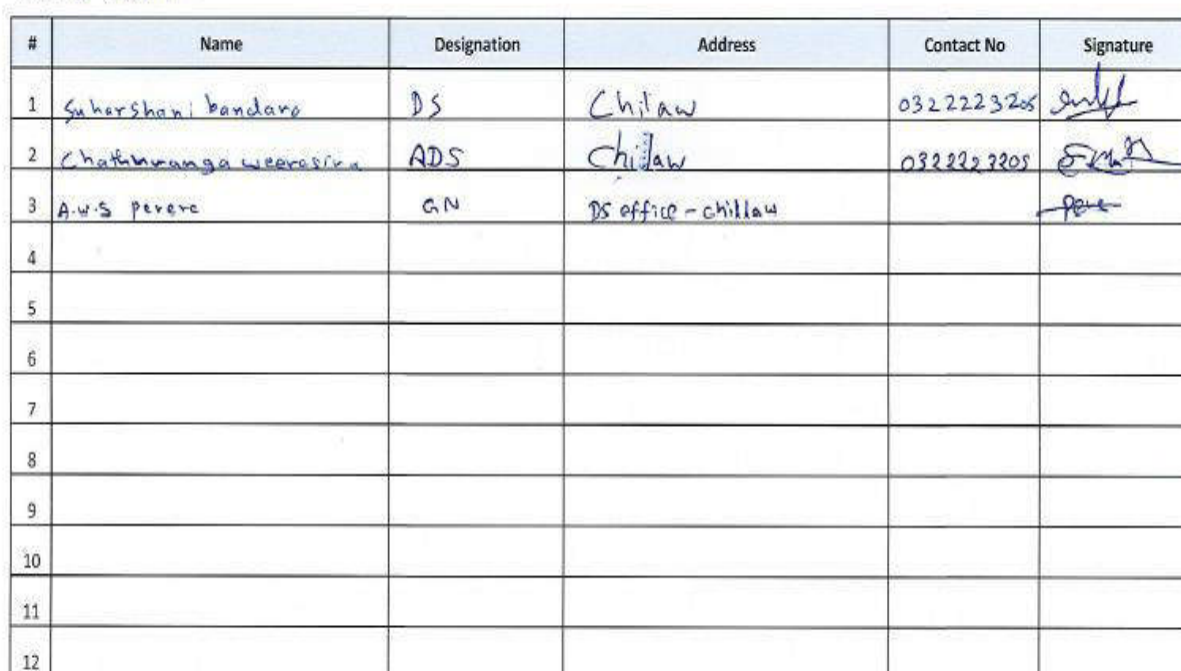 # Name Designation Address Contact No Signature
1 Suharshani bandara DS Chilaw 0322223205
2 Chathuranga weerasira ADS Chilaw 0322223205
3 A.W.S perera GN DS office - chillaw
4
5
6
7
8
9
10
11
12